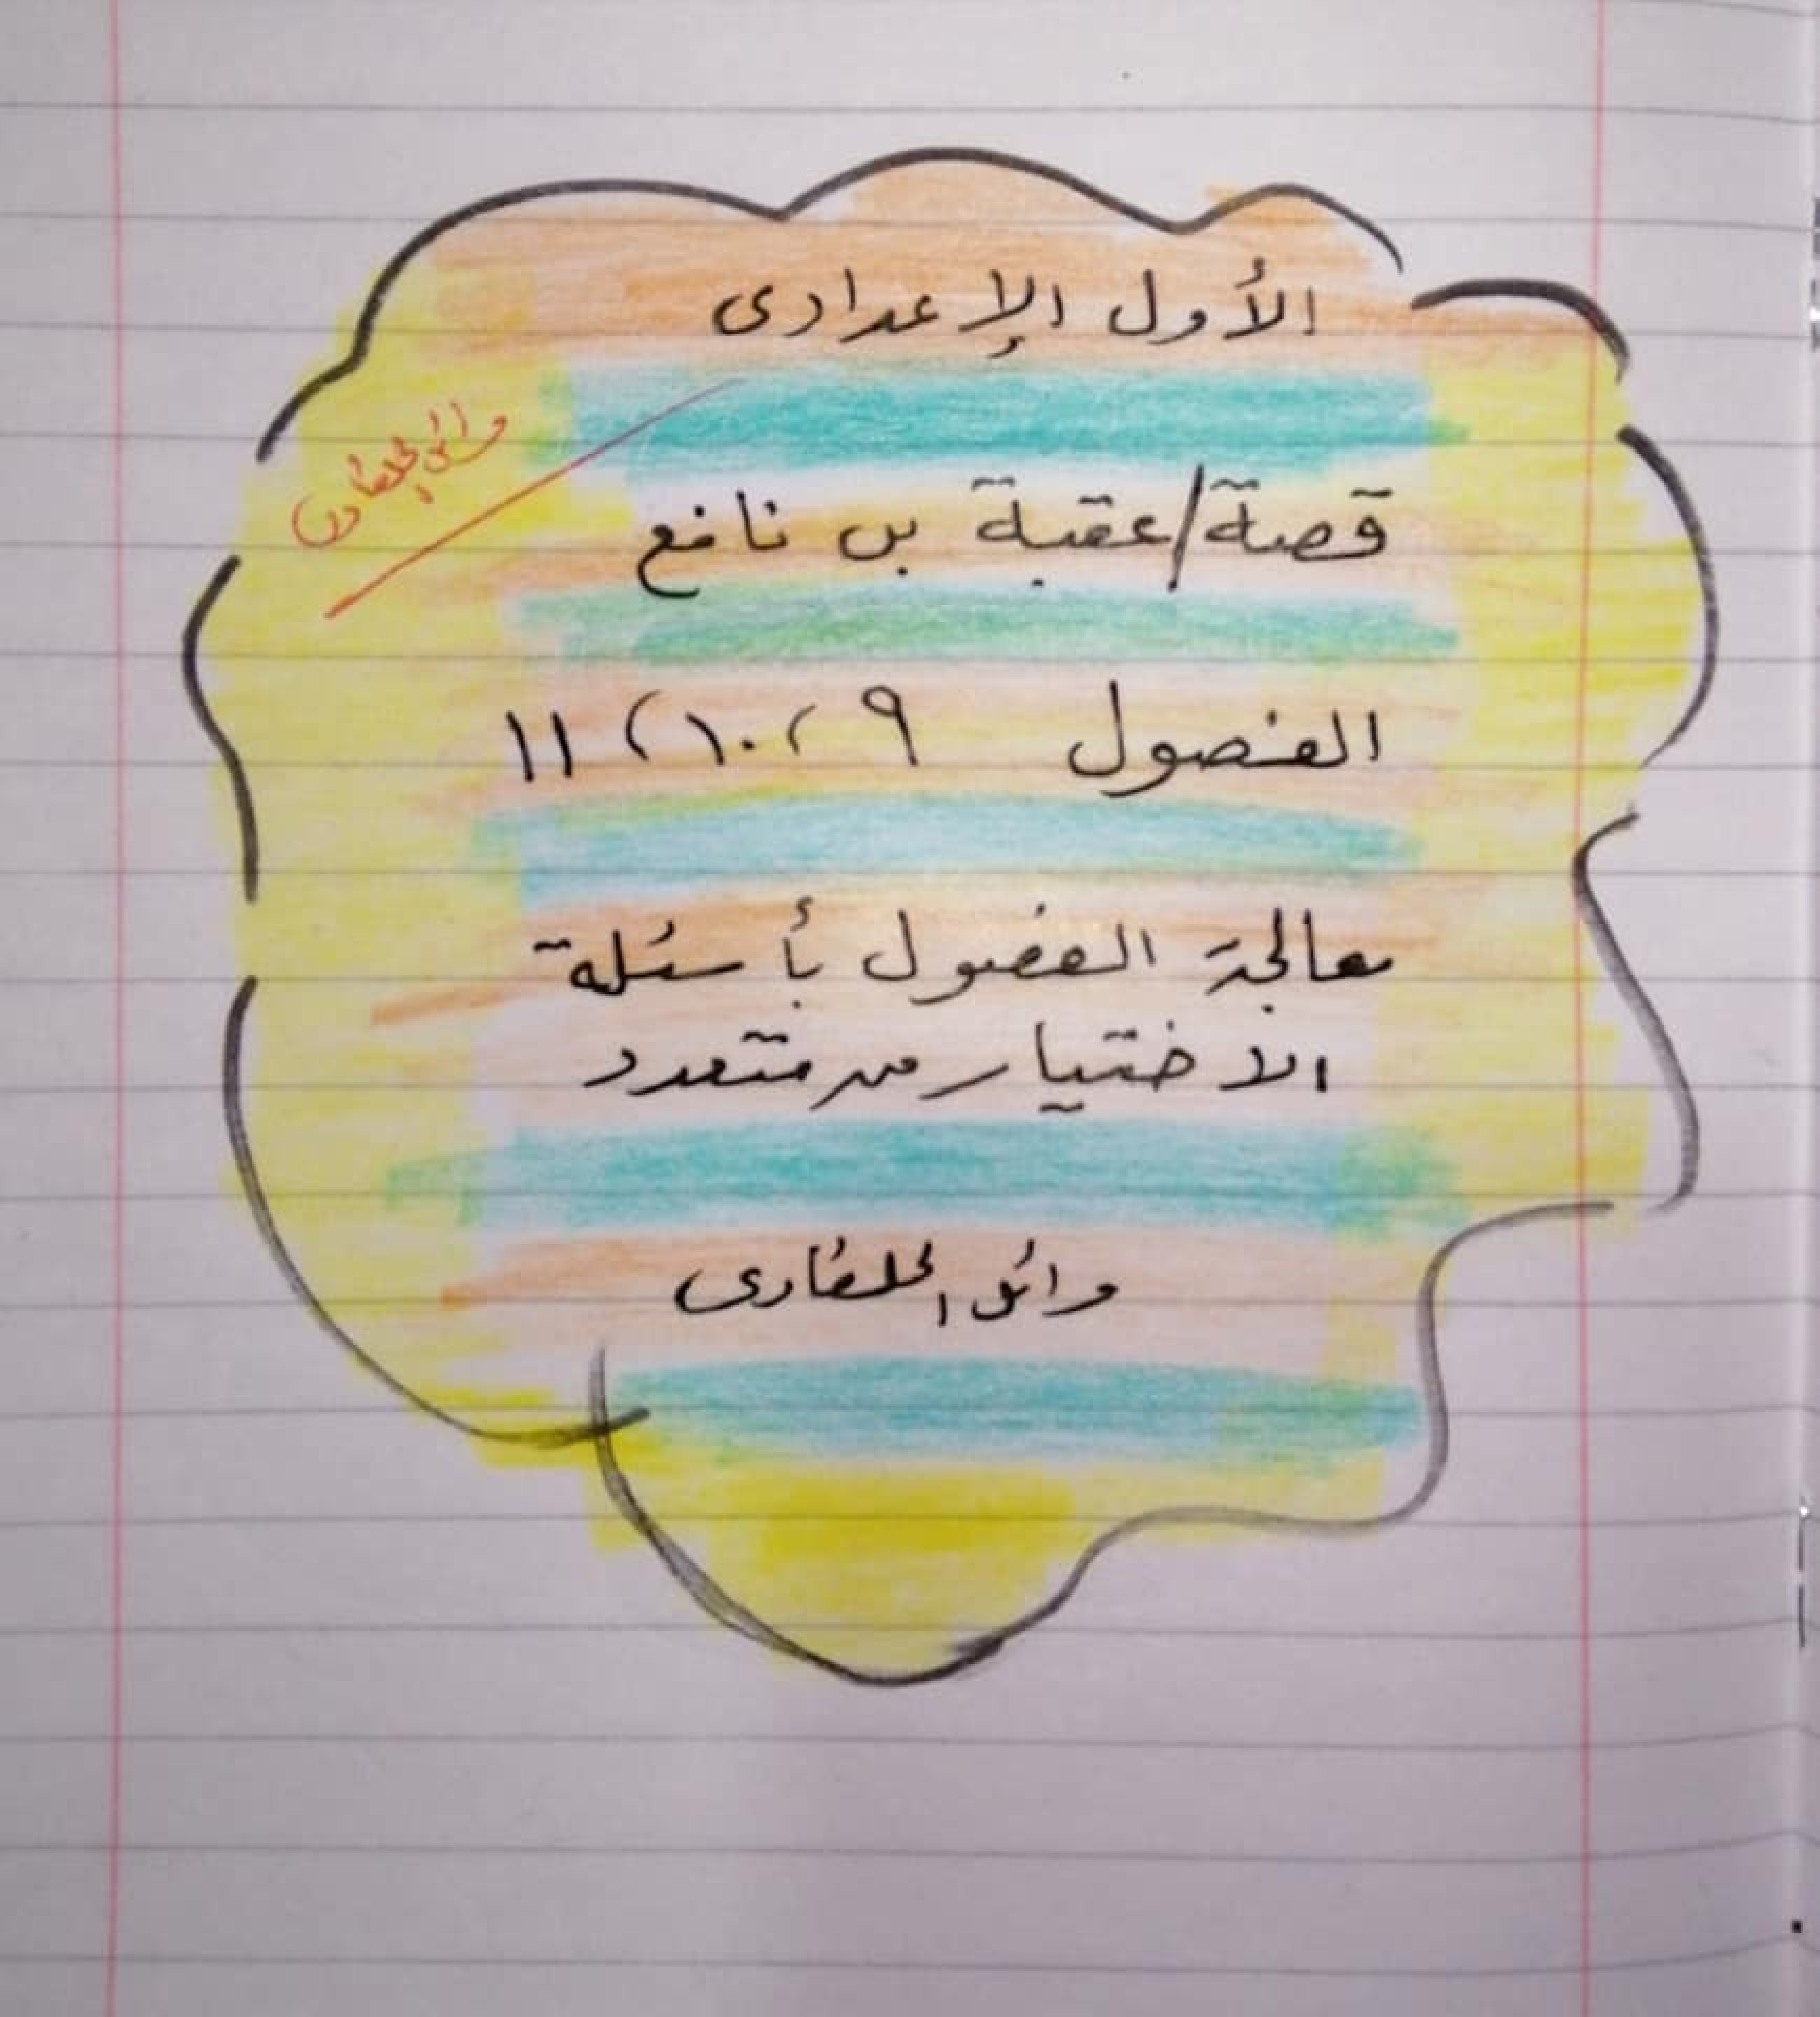 الأول الإعدادى
قصة/عقبة بن نافع
الفصول ٩، ١٠، ١١
معالجة الفصول بأسئلة
الاختيار من متعدد
وائل الحلفاوى
وائل الحلفاوى